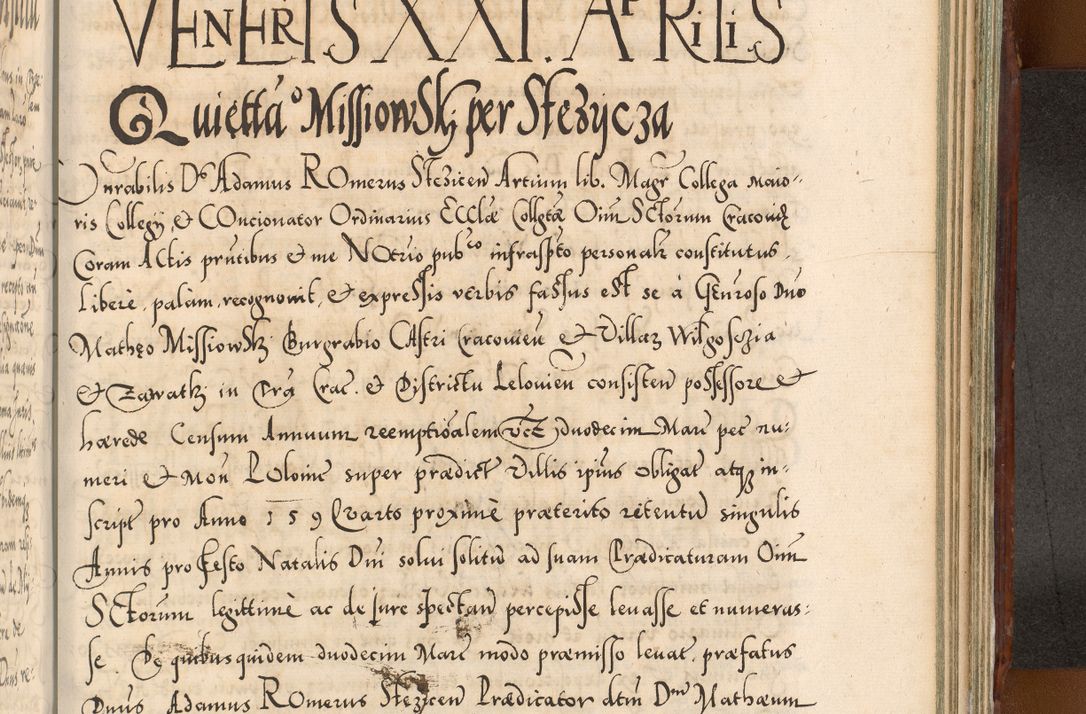 VENERIS XXI. APRILIS
Quiettao Missiowsky per Stezycza
Onrabilis Ds Adamus ROmerus Stezicen Artium lib. Magr Collega maio-
ris Collegij, et COncionator Ordinarius ECClae Collgtae Oim SCtorum Cracovien
Coram ACtis prntibus et me NOtrio pubco infrascpto personalr constitutus,
Libere, palam, recognovit, et expressis verbis fassus est se à Genroso Dno
Mathęo Missiowsky Burgrabio CAstri Cracovien et Villar Wilgoschia
et Zawatky in Pra Crac. et Districtu Leloviens consisten possessore et
hærede Censum Annuum reemptioalem vct duodecim Marc pec nu-
meri et Mon POlonic super prædict Villis ipius obligat atq in-
script pro Anno 159 Quarto proximè præterito retentu singulis
Annis pro festo Natalis Dni solui solitu ad suam Prædicaturam Oim
SCtorum legittimè ac de jure spectan percepisse levasse et numeras-
se. De quibus quidem duodecim Marc modo præmisso levat. præfatus
Dnus Adamus ROmerus Stezicen Prædicator dtm Dnm Mathæum